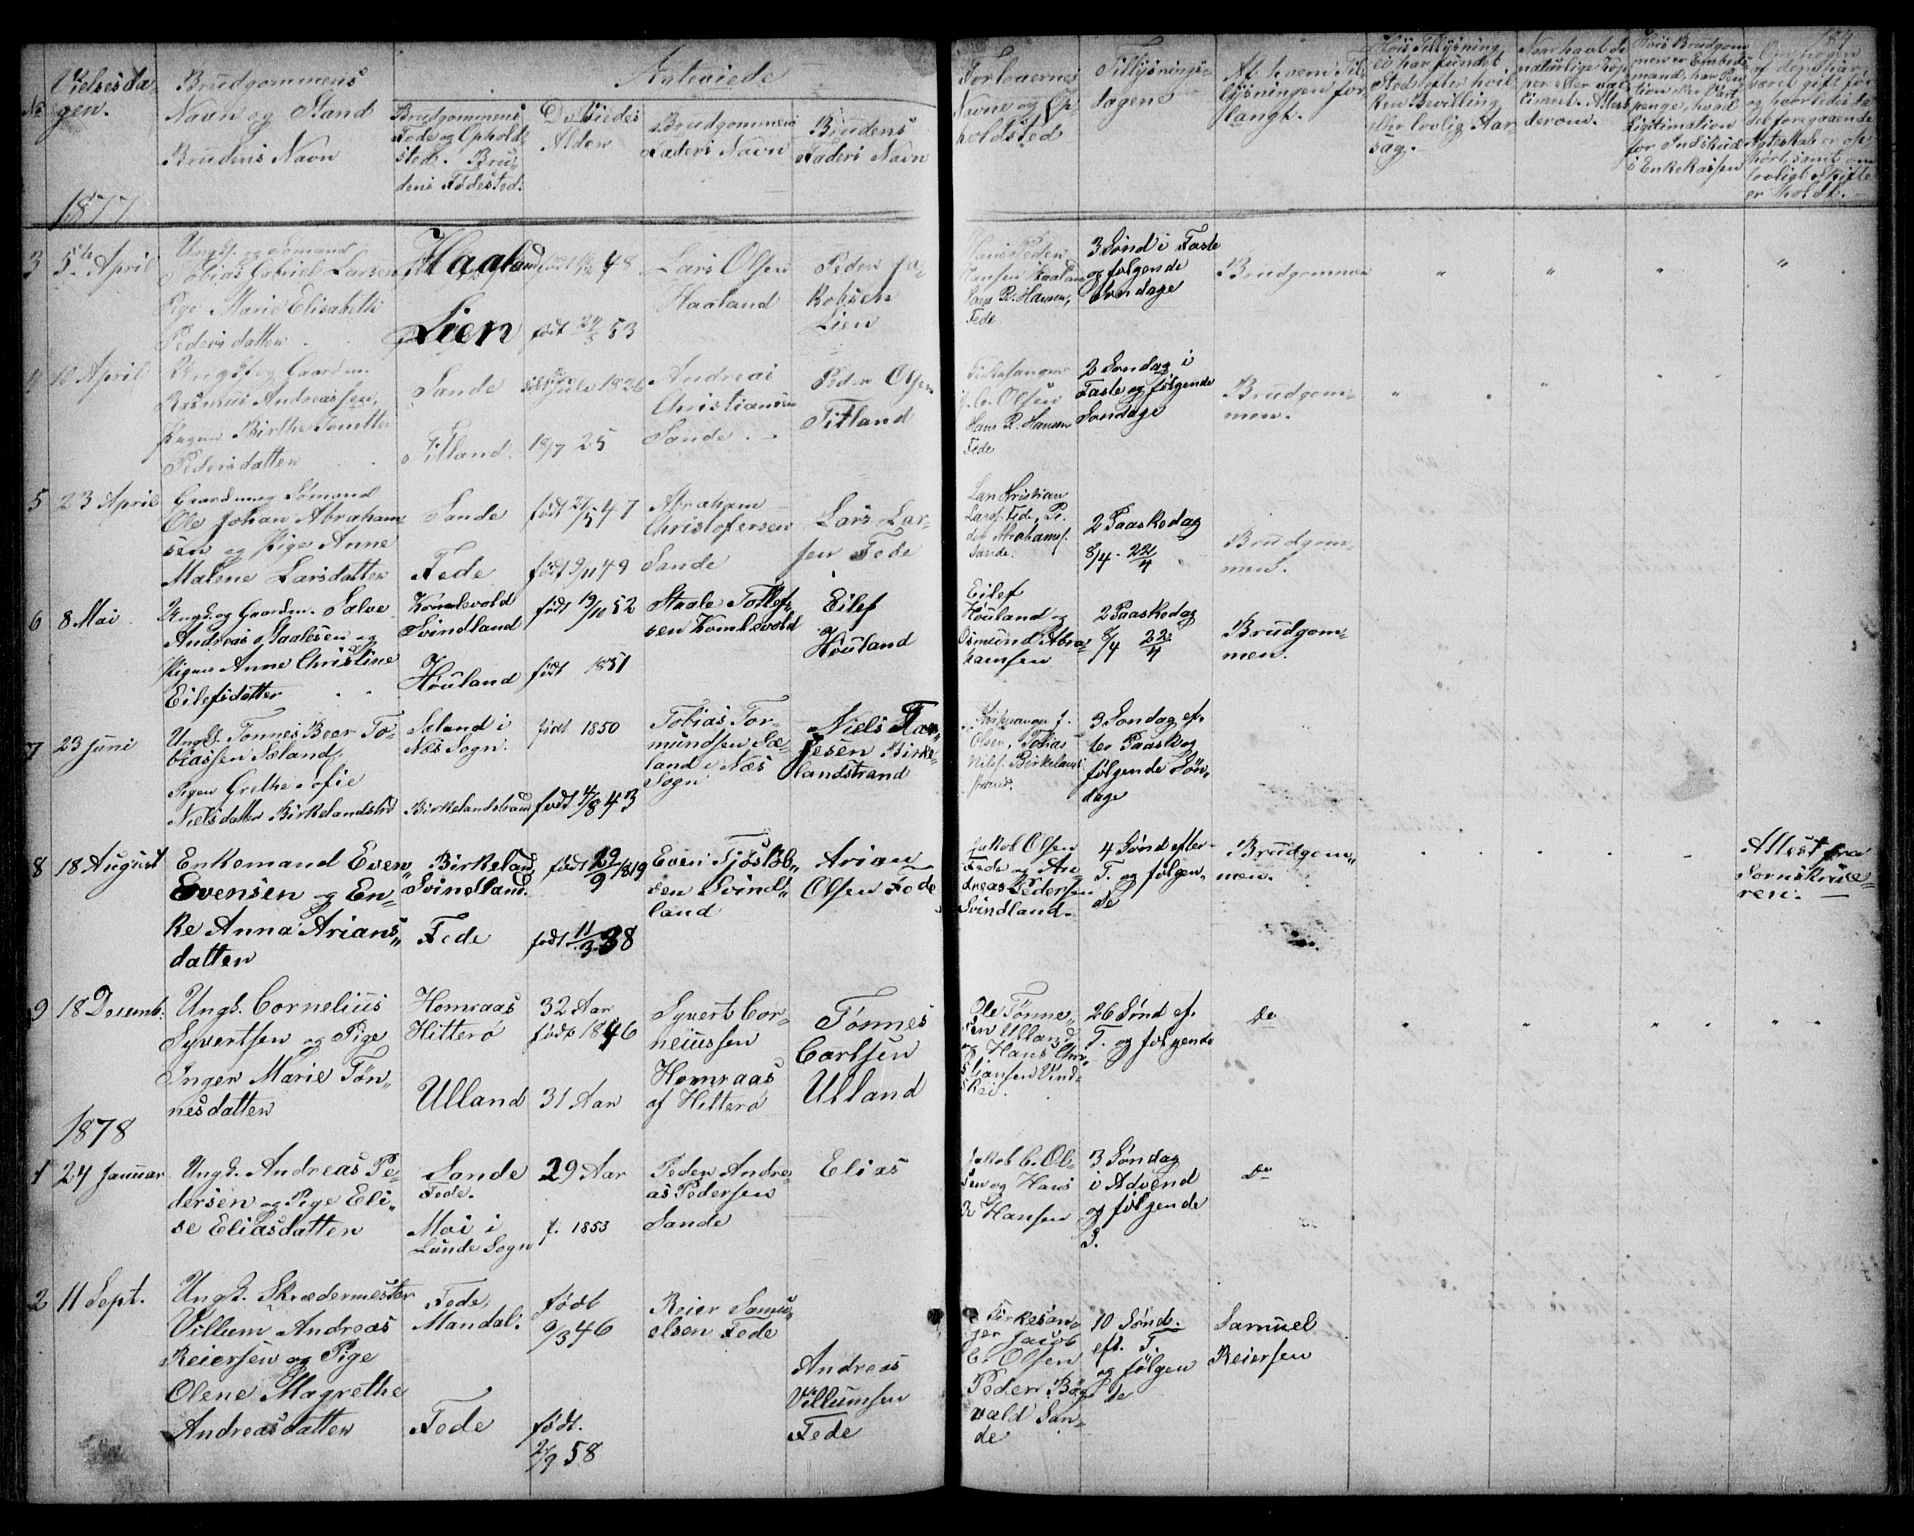 184
No
Vielsesda-
gen.
Brudgommens
Navn og Stand
Brudens Navn
Ægteviede
Brudgommens
Føde og Ophold-
sted. Bru-
dens Fødested.
De Viedes
Alder
Brudgommens
Faders Navn
Brudens
Faders Navn
Forlovernes
Navne og Op-
holdsted
Tillysnings-
dagene
Af hvem Til-
lysningen for-
langt.
Hvis Tillysning
ei har fundet
Sted efter hvil-
ken Bevilling
eller lovlig Aar-
sag.
Naar havt de
naturlige Kop-
per eller val-
cineret. Attest
derom.
Hvis Brudgom-
men er Embeds-
mand, har Pen-
tion eller Vart-
penge, hvad
Legitimation
for Indskud
i Enkekassen
Om nogen
af dem har
været gift før
og hvorledes da
det foregaaende
Ægteskab er op-
hørt, samt om
lovligt Skifte
er holdt.
1877
3 5te April
Ungk. og Sømand
Tobias Gabriel Larsen
Pige Marie Elisabeth
Pedersdatter
Haaland
48
Lien
født 24/8 53
Lars Olsen
Haaland
Peder Ja-
kobsen
Lien
Hans Peder
Hansen Haaland
Hans R. Hansen,
Fede
3 Sønd i Faste
og følgende
Søndage
Brudgommen
" " " "
4 10 April
Ungk og Gaardm.
Rasmus Andreassen,
Pigen Birthe Tomette
Pedersdatter
Sande
Titland.
1826
18/7 25
Andreas
Christiansen
Sande
Peder Olsen
Titland
Kirkesanger
J. C. Olsen
Hans R. Hansen
Fede
2 Søndag i
Faste og følgende
Søndage
Brudgom-
men.
5 23 April
Gaardm og Sømand
Ole Johan Abraham-
sen og Pige Anne
Malene Larsdatter
Sande
Fede
født 21/5 47
født 9/11 49
Abraham
Christofersen
Sande
Lars Lar-
sen Fede
Lars Kristian
Lars. Fede, Pe-
der Abrahams.
Sande.
2 Paaskedag
8/4 - 22/4
Brudgom-
men.
6 8 Mai
Ungk og Gaardm. Salve
Andreas Staalesen og
Pigen Anne Christine
Eilefsdatter
Komlevold
Svindland
Høuland
født 19/10 52
født 1851
Staale Tollef-
sen Komlevold
Eilef
Høuland
Eilef
Høuland og
Osmund Abra-
hamsen
2 Paaskedag
8/4 22/4
Brudgom-
men.
7 23 Juni
Ungk. Tønnes Beer To-
biassen Seland,
Pigen Grethe Sofie
Nielsdatter Birkelandstrd
Seland i
Næs Sogn.
Birkelandstrand
født 1850
født 4/8 43
Tobias Tor-
mundsen Sæ-
land i Næs
Sogn
Niels Tar-
jesen Birke-
landstrand
Kirkesanger J.
Olsen, Tobias
Nils. Birkelands-
strand.
3 Søndag ef-
ter Paaske og
følgende Søn-
dage
8 18 August
Enkemand Even
Evensen og En-
ke Anna Arians-
datter
Birkeland
Svindland.
Fede
født 29/9 1819
født 11/3 38
Even Tjøstolv-
sen Svind-
land
Arian
Olsen Fede
Jakob Olsen
Fede og An-
dreas Pedersen
Svindland.
4 Sønd efter
T. og følgen-
de
Brudgom-
men.
Attest fra
Sorenskrive-
ren.
9 18 Decemb.
Ungk. Cornelius
Syvertsen og Pige
Inger Marie Tøn-
nesdatter
Homraas
Hitterø
Ulland
32 Aar
født 1846
31 Aar
Syvert Cor-
neiussen
Homraas
af Hitterø
Tønnes
Carlsen
Ulland
Ole Tønne-
sen Ulland
og Hans Chri-
stiansen Vind-
skei.
26 Sønd ef.
T. og følgende
Do
" " " " "
1878
1 24 Januar
Ungk. Andreas Pe-
dersen og Pige Eli-
se Eliasdatter
Sande
Fede.
Moi i
Lunde Sogn
29 Aar
f. 1853
Peder Andre-
as Pedersen
Sande
Elias
Jakob C. Ol-
sen og Hans
R Hansen
3 Søndag
i Advend
og følgende
S.
Do
2 11 Sept.
Ungk. Skrædermester
Villum Andreas
Reiersen og Pige
Olene Magrethe
Andreasdatter
Fede,
Mandal.
Fede
født
9/3 46
født.
2/9 58
Reier Samu-
elsen Fede
Andreas
Villumsen
Fede
Kirkesan-
ger Jacob
C. Olsen
Peder Bøg-
vald San-
de
10 Sønd.
eft. T.
og følgen
de
Samuel
Reiersen